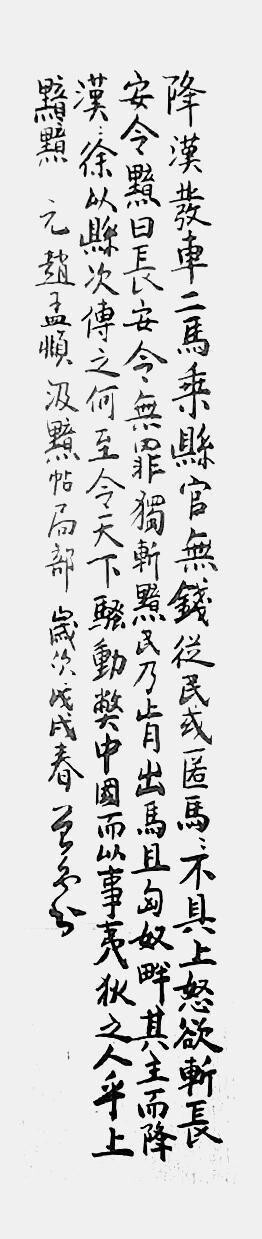 降漢發車二馬乘縣官無錢從民或匿馬〻不具上怒欲斬長
安令黯曰長安令無罪獨斬黯民乃肯出馬且匈奴畔其主而降
漢〻徐以縣次傳之何至令天下騷動獘中國而以事夷狄之人乎上
黯黯 元 趙孟頫 汲黯帖局部 歲次戊戌春